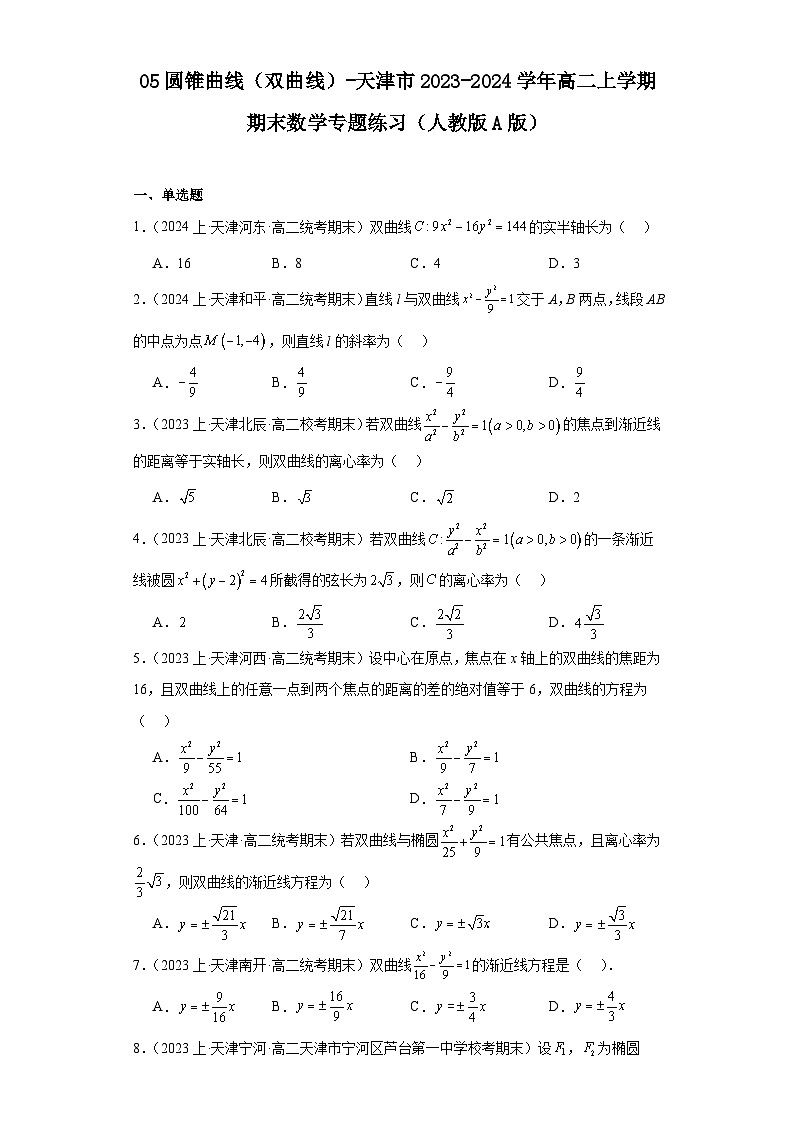 05 圆锥曲线（双曲线）-天津市 2023-2024 学年高二上学期
期末数学专题练习（人教版 A 版）
一、单选题
1.（2024 上·天津河东·高二统考期末）双曲线 C : 9x² − 16y² = 144 的实半轴长为（　）
A．16 B．8 C．4 D．3
2.（2024 上·天津和平·高二统考期末）直线 l 与双曲线 x² − y²/9 = 1 交于 A,B 两点，线段 AB
的中点为点 M (−1,−4)，则直线 l 的斜率为（　）
A．−4/9 B．4/9 C．−9/4 D．9/4
3.（2023 上·天津北辰·高二校考期末）若双曲线 x²/a² − y²/b² = 1(a > 0,b > 0) 的焦点到渐近线
的距离等于实轴长，则双曲线的离心率为（　）
A．√5 B．√3 C．√2 D．2
4.（2023 上·天津北辰·高二校考期末）若双曲线 C : y²/a² − x²/b² = 1(a > 0,b > 0) 的一条渐近
线被圆 x² + (y − 2)² = 4 所截得的弦长为 2√3，则 C 的离心率为（　）
A．2 B．2√3/3 C．2√2/3 D．4√3/3
5.（2023 上·天津河西·高二统考期末）设中心在原点，焦点在 x 轴上的双曲线的焦距为
16，且双曲线上的任意一点到两个焦点的距离的差的绝对值等于 6，双曲线的方程为
（　）
A．x²/9 − y²/55 = 1 B．x²/9 − y²/7 = 1
C．x²/100 − y²/64 = 1 D．x²/7 − y²/9 = 1
6.（2023 上·天津·高二统考期末）若双曲线与椭圆 x²/25 + y²/9 = 1 有公共焦点，且离心率为
2/3 √3，则双曲线的渐近线方程为（　）
A．y = ±√21/3 x B．y = ±√21/7 x C．y = ±√3x D．y = ±√3/3 x
7.（2023 上·天津南开·高二统考期末）双曲线 x²/16 − y²/9 = 1 的渐近线方程是（　）.
A．y = ±9/16 x B．y = ±16/9 x C．y = ±3/4 x D．y = ±4/3 x
8.（2023 上·天津宁河·高二天津市宁河区芦台第一中学校考期末）设 F₁，F₂ 为椭圆